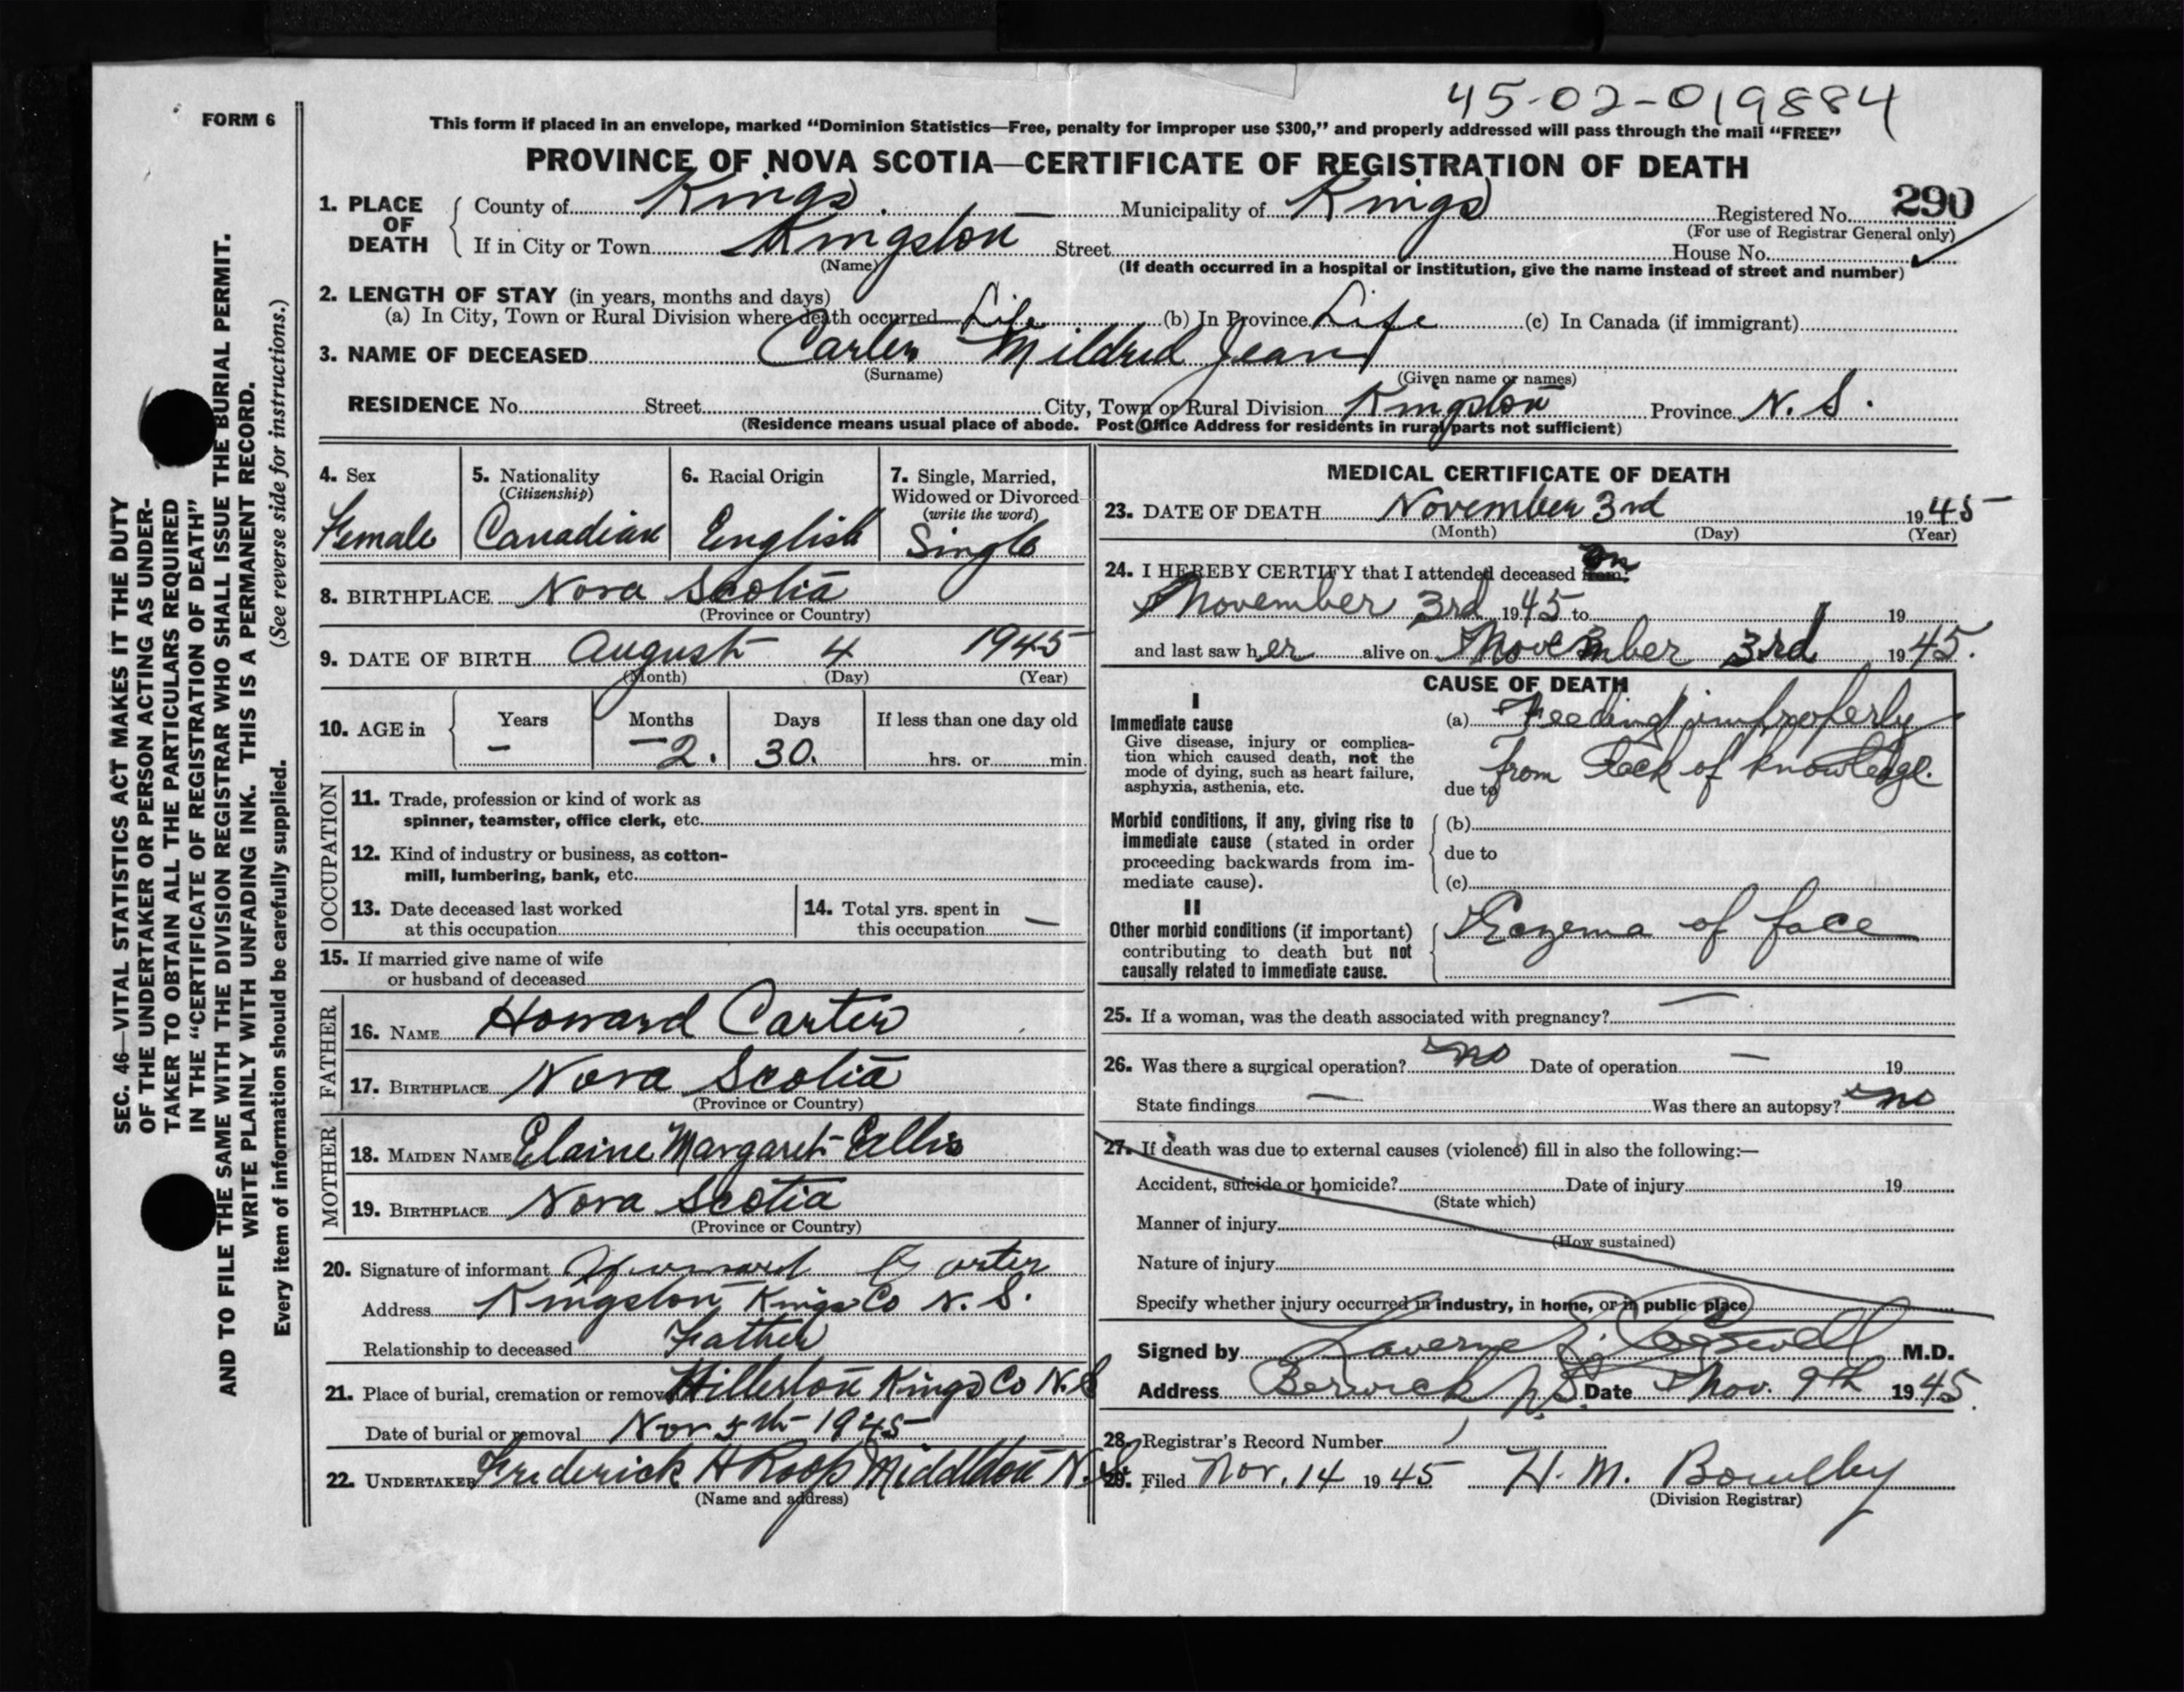 45-02-019884
FORM 6
This form if placed in an envelope, marked “Dominion Statistics—Free, penalty for improper use $300,” and properly addressed will pass through the mail “FREE”
PROVINCE OF NOVA SCOTIA—CERTIFICATE OF REGISTRATION OF DEATH
SEC. 46—VITAL STATISTICS ACT MAKES IT THE DUTY
OF THE UNDERTAKER OR PERSON ACTING AS UNDER-
TAKER TO OBTAIN ALL THE PARTICULARS REQUIRED
IN THE “CERTIFICATE OF REGISTRATION OF DEATH”
AND TO FILE THE SAME WITH THE DIVISION REGISTRAR WHO SHALL ISSUE THE BURIAL PERMIT.
WRITE PLAINLY WITH UNFADING INK. THIS IS A PERMANENT RECORD.
Every item of information should be carefully supplied. (See reverse side for instructions.)
1. PLACE OF DEATH
County of Kings Municipality of Kings Registered No. 290
(For use of Registrar General only)
If in City or Town Kingston Street House No.
(Name) (If death occurred in a hospital or institution, give the name instead of street and number)
2. LENGTH OF STAY (in years, months and days)
(a) In City, Town or Rural Division where death occurred Life (b) In Province Life (c) In Canada (if immigrant)
3. NAME OF DECEASED Carter Mildred Jean
(Surname) (Given name or names)
RESIDENCE No. Street City, Town or Rural Division Kingston Province N.S.
(Residence means usual place of abode. Post Office Address for residents in rural parts not sufficient)
4. Sex
Female
5. Nationality
(Citizenship)
Canadian
6. Racial Origin
English
7. Single, Married,
Widowed or Divorced
(write the word)
Single
8. BIRTHPLACE Nova Scotia
(Province or Country)
9. DATE OF BIRTH August 4 1945
(Month) (Day) (Year)
10. AGE in
Years Months Days If less than one day old
- -2. 30. hrs. or min.
OCCUPATION
11. Trade, profession or kind of work as
spinner, teamster, office clerk, etc.
12. Kind of industry or business, as cotton-
mill, lumbering, bank, etc.
13. Date deceased last worked
at this occupation
14. Total yrs. spent in
this occupation —
15. If married give name of wife
or husband of deceased
FATHER
16. NAME Howard Carter
17. BIRTHPLACE Nova Scotia
(Province or Country)
MOTHER
18. MAIDEN NAME Elaine Margaret Ellis
19. BIRTHPLACE Nova Scotia
(Province or Country)
20. Signature of informant Howard Carter
Address Kingston Kings Co N.S.
Relationship to deceased Father
21. Place of burial, cremation or removal Kings Co N.S
Date of burial or removal Nov 5th 1945
22. UNDERTAKER Frederick H Roop Middleton N.S.
(Name and address)
MEDICAL CERTIFICATE OF DEATH
23. DATE OF DEATH November 3rd 1945
(Month) (Day) (Year)
24. I HEREBY CERTIFY that I attended deceased from: on
November 3rd 1945 to 19
and last saw her alive on November 3rd 1945.
CAUSE OF DEATH
I
Immediate cause
Give disease, injury or complica-
tion which caused death, not the
mode of dying, such as heart failure,
asphyxia, asthenia, etc.
(a) Feeding improperly
from lack of knowledge.
due to
Morbid conditions, if any, giving rise to
immediate cause (stated in order
proceeding backwards from im-
mediate cause).
(b)
due to
(c)
II
Other morbid conditions (if important)
contributing to death but not
causally related to immediate cause.
Eczema of face
25. If a woman, was the death associated with pregnancy? —
26. Was there a surgical operation? no Date of operation — 19
State findings — Was there an autopsy? no
27. If death was due to external causes (violence) fill in also the following:—
Accident, suicide or homicide? Date of injury 19
(State which)
Manner of injury
(How sustained)
Nature of injury
Specify whether injury occurred in industry, in home, or in public place
Signed by Laverne L. Cogswell M.D.
Address Berwick N.S. Date Nov. 9th 1945.
28. Registrar's Record Number
29. Filed Nov. 14 1945 H. M. Bowlby
(Division Registrar)